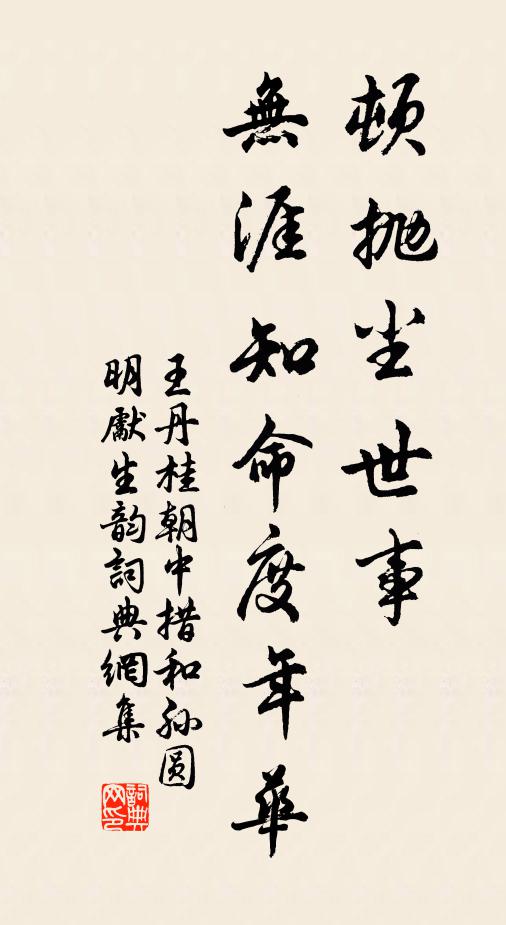 頓拋尘世事
無涯知命度年華
王丹桂朝中措和孙圆
明獻生韵詞典網集
詞典
网印